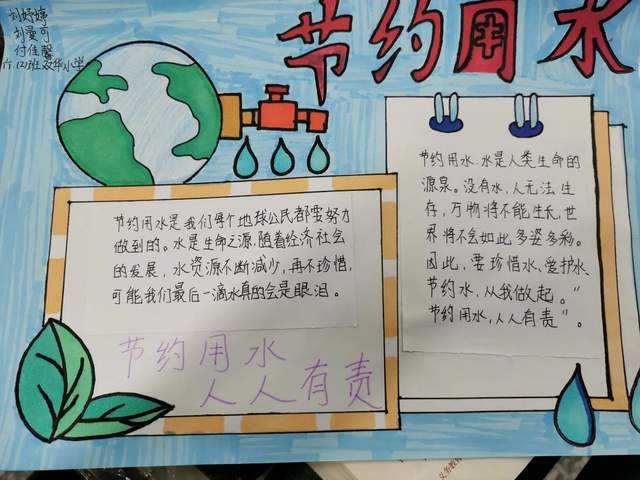 刘妤婷
刘曼可
付佳馨
六.(2)班双华小学
节约用水
节约用水是我们每个地球公民都要努力
做到的。水是生命之源,随着经济社会
的发展,水资源不断减少,再不珍惜,
可能我们最后一滴水真的会是眼泪。
节约用水
人人有责
节约用水.水是人类生命的
源泉。没有水,人无法生
存,万物将不能生长,世
界将不会如此多姿多彩。
因此,要珍惜水、爱护水、
节约水,从我做起。"
节约用水,人人有责"。